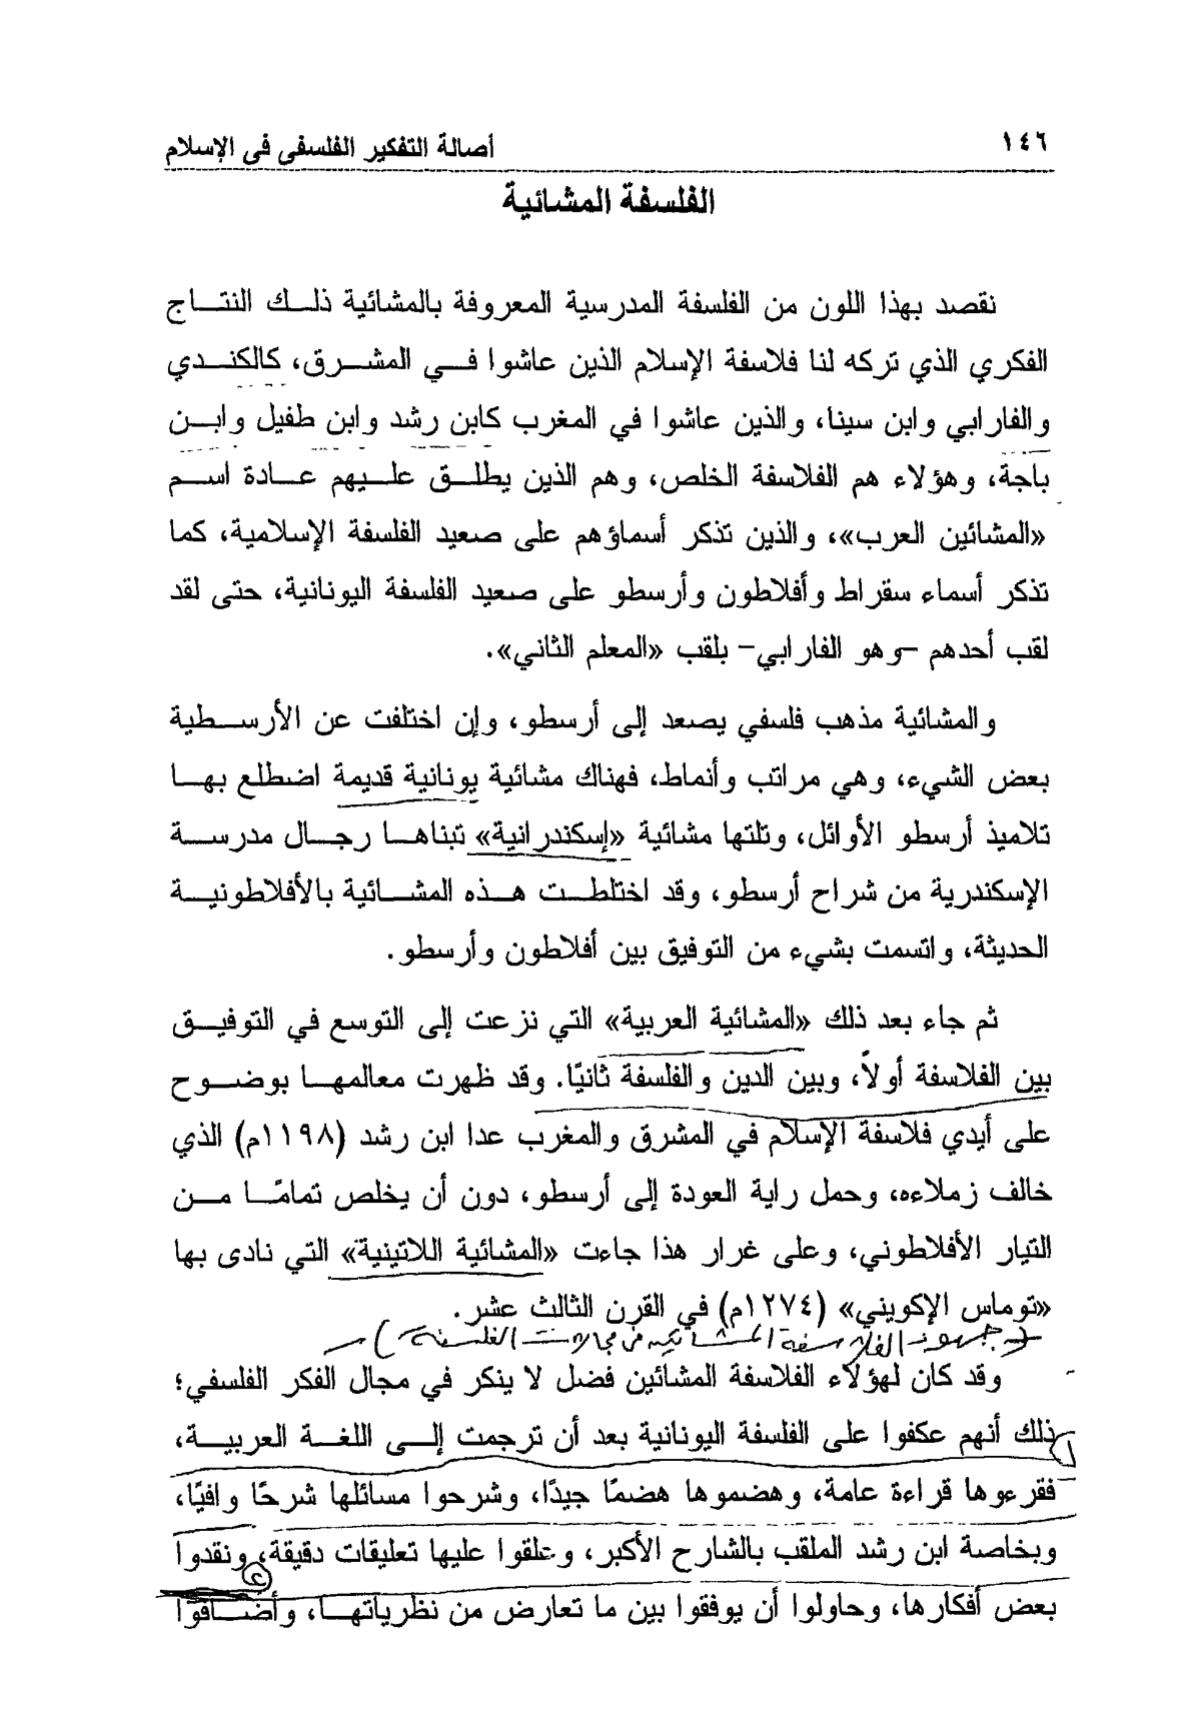 ١٤٦
أصالة التفكير الفلسفى فى الإسلام
الفلسفة المشائية
نقصد بهذا اللون من الفلسفة المدرسية المعروفة بالمشائية ذلك النتاج
الفكري الذي تركه لنا فلاسفة الإسلام الذين عاشوا في المشرق، كالكندي
والفارابي وابن سينا، والذين عاشوا في المغرب كابن رشد وابن طفيل وابن
باجة، وهؤلاء هم الفلاسفة الخلص، وهم الذين يطلق عليهم عادة اسم
«المشائين العرب»، والذين تذكر أسماؤهم على صعيد الفلسفة الإسلامية، كما
تذكر أسماء سقراط وأفلاطون وأرسطو على صعيد الفلسفة اليونانية، حتى لقد
لقب أحدهم -وهو الفارابي- بلقب «المعلم الثاني».
والمشائية مذهب فلسفي يصعد إلى أرسطو، وإن اختلفت عن الأرسطية
بعض الشيء، وهي مراتب وأنماط، فهناك مشائية يونانية قديمة اضطلع بها
تلاميذ أرسطو الأوائل، وتلتها مشائية «إسكندرانية» تبناها رجال مدرسة
الإسكندرية من شراح أرسطو، وقد اختلطت هذه المشائية بالأفلاطونية
الحديثة، واتسمت بشيء من التوفيق بين أفلاطون وأرسطو.
ثم جاء بعد ذلك «المشائية العربية» التي نزعت إلى التوسع في التوفيق
بين الفلاسفة أولاً، وبين الدين والفلسفة ثانيًا. وقد ظهرت معالمها بوضوح
على أيدي فلاسفة الإسلام في المشرق والمغرب عدا ابن رشد (١١٩٨م) الذي
خالف زملاءه، وحمل راية العودة إلى أرسطو، دون أن يخلص تمامًا من
التيار الأفلاطوني، وعلى غرار هذا جاءت «المشائية اللاتينية» التي نادى بها
«توماس الإكويني» (١٢٧٤م) في القرن الثالث عشر.
(جهود الفلاسفة المشائية في مجالات الفلسفة)
وقد كان لهؤلاء الفلاسفة المشائين فضل لا ينكر في مجال الفكر الفلسفي؛
ذلك أنهم عكفوا على الفلسفة اليونانية بعد أن ترجمت إلى اللغة العربية،
فقرءوها قراءة عامة، وهضموها هضمًا جيدًا، وشرحوا مسائلها شرحًا وافيًا،
وبخاصة ابن رشد الملقب بالشارح الأكبر، وعلقوا عليها تعليقات دقيقة، ونقدوا
بعض أفكارها، وحاولوا أن يوفقوا بين ما تعارض من نظرياتها، وأضافوا